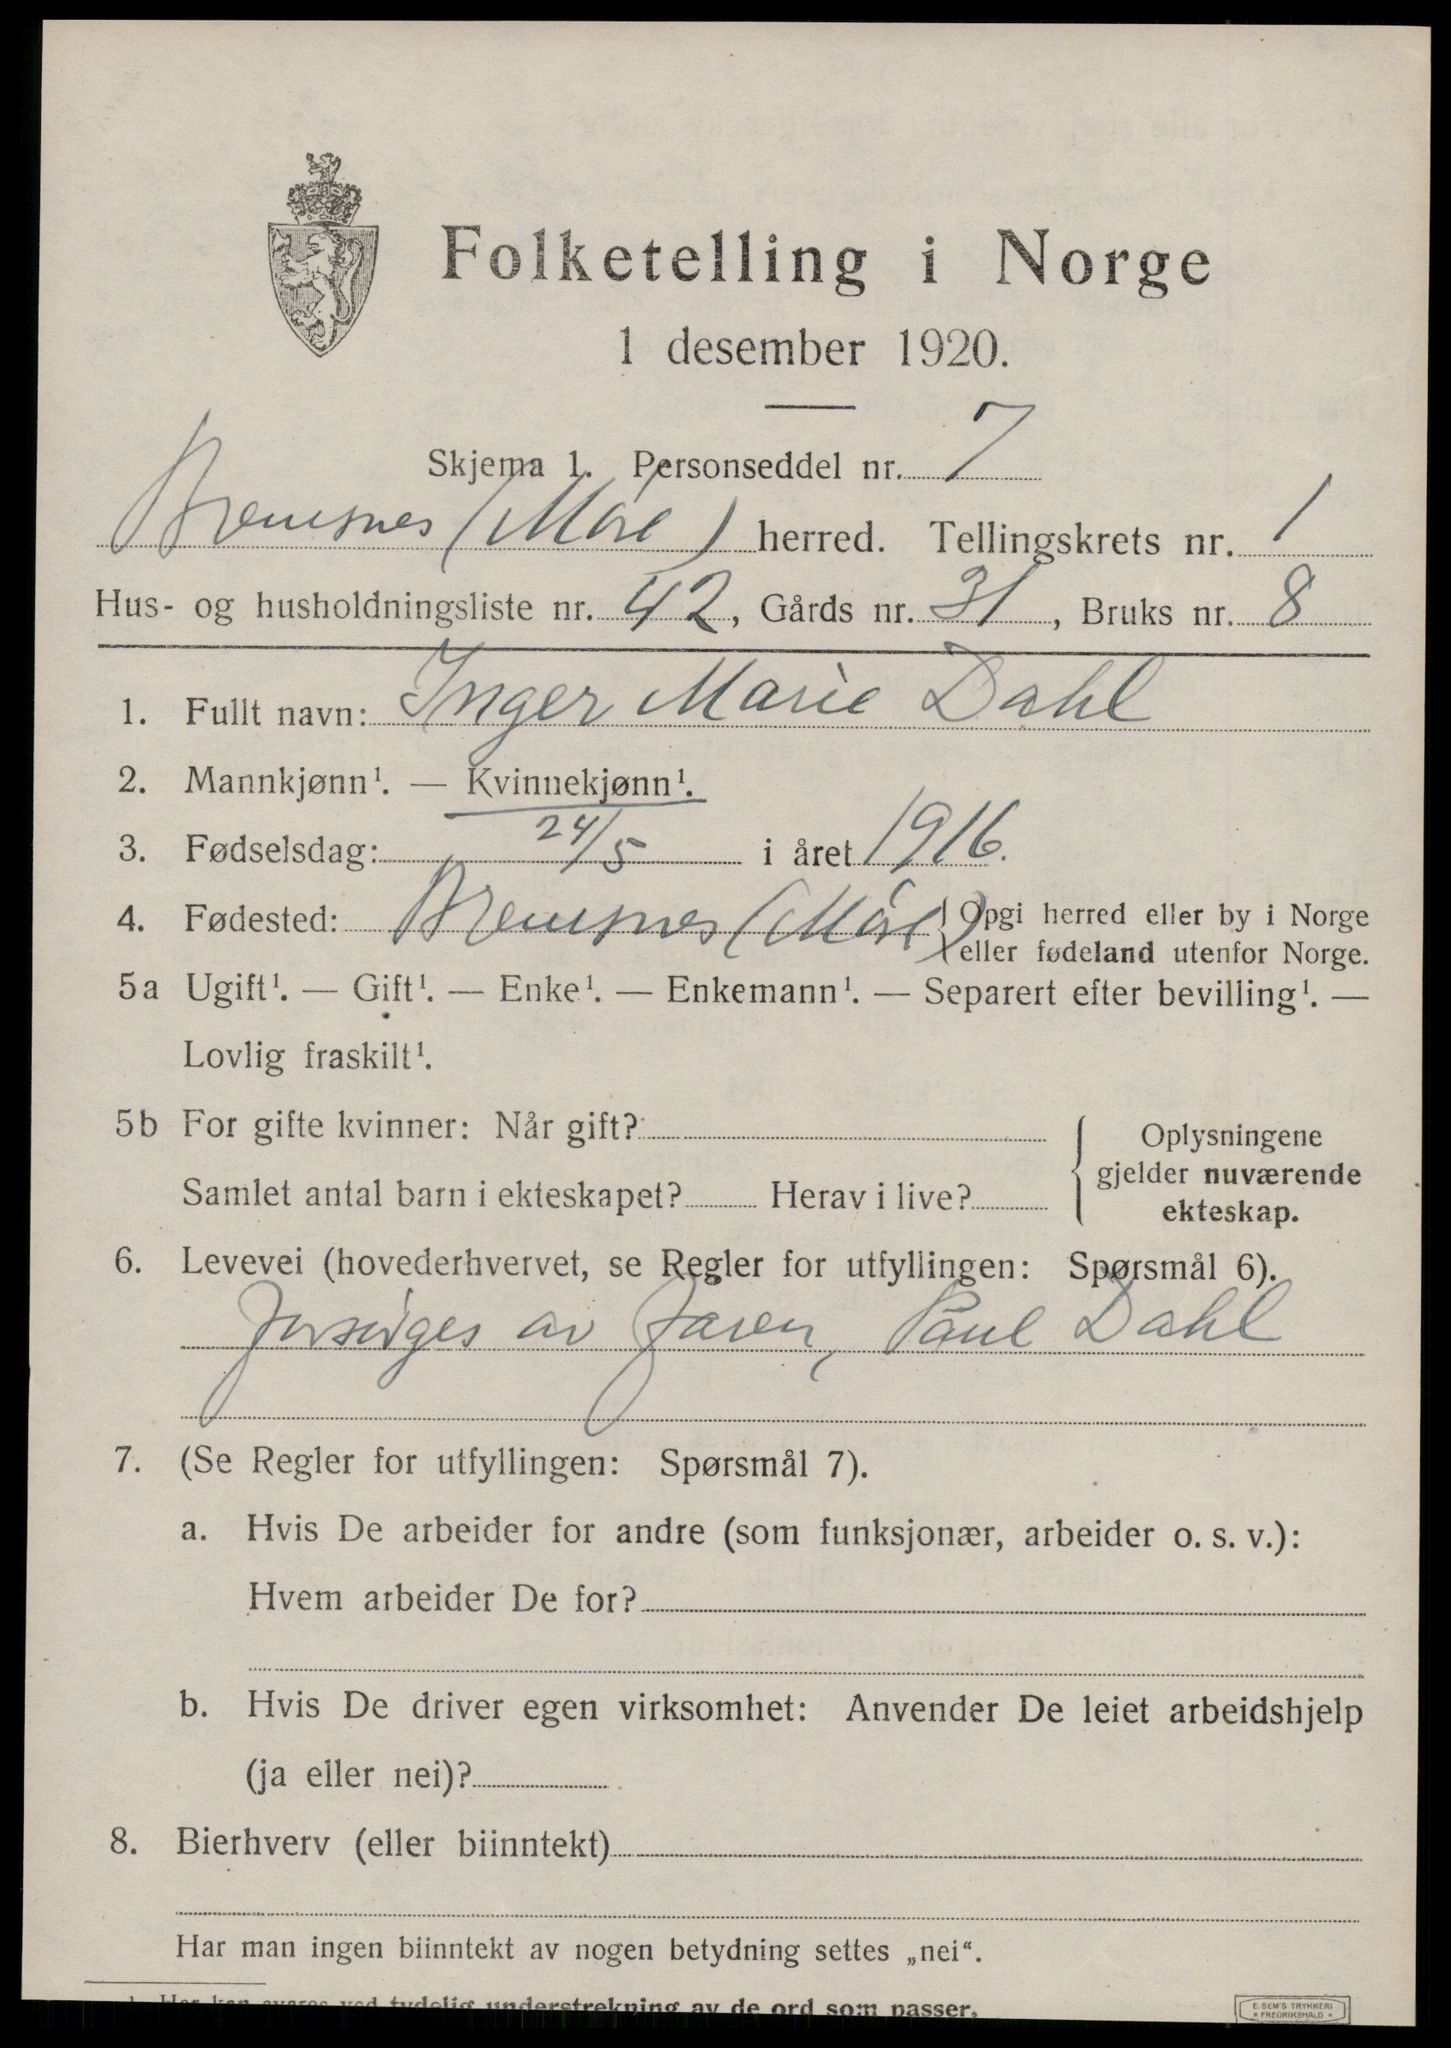 Folketelling i Norge
1 desember 1920.
Skjema 1. Personseddel nr. 7
Bremsnes (Møre) herred. Tellingskrets nr. 1
Hus- og husholdningsliste nr. 42, Gårds nr. 31, Bruks nr. 8
1. Fullt navn: Inger Marie Dahl
2. Mannkjønn¹. — Kvinnekjønn¹.
3. Fødselsdag: 24/5 i året 1916.
4. Fødested: Bremsnes (Møre) Opgi herred eller by i Norge
eller fødeland utenfor Norge.
5a Ugift¹. — Gift¹. — Enke¹. — Enkemann¹. — Separert efter bevilling¹. —
Lovlig fraskilt¹.
5b For gifte kvinner: Når gift?
Samlet antal barn i ekteskapet? Herav i live?
Oplysningene
gjelder nuværende
ekteskap.
6. Levevei (hovederhvervet, se Regler for utfyllingen: Spørsmål 6).
Forsørges av faren, Paul Dahl
7. (Se Regler for utfyllingen: Spørsmål 7).
a. Hvis De arbeider for andre (som funksjonær, arbeider o. s. v.):
Hvem arbeider De for?
b. Hvis De driver egen virksomhet: Anvender De leiet arbeidshjelp
(ja eller nei)?
8. Bierhverv (eller biinntekt)
Har man ingen biinntekt av nogen betydning settes „nei“.
¹ Her kan svares ved tydelig understrekning av de ord som passer.
E. SEM'S TRYKKERI
FREDRIKSHALD